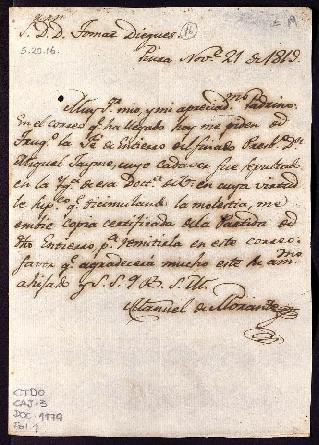 S. D. D. Tomas Dieguez.
16
S.20.16.
Piura Nov.e 21 de 1819.
Muy S.r mio, y mi apreciad.mo Padrino:
En el correo q.e ha llegado hoy me piden de
Trug.o la Fe de Entierro del finado Presb.o D.n
Miguel cuyo cadaver fue sepultado
en la Yg.a de esa Doct.a de V. en cuya virtud
le sup.co q.e disimulando la molestia, me
embie copia certificada de la Partida de
dho Entierro p.a remitirla en este correo:
favor q.e agradecerá mucho este su am.mo
ahijado y S. S. Q. B. S. M.
Manuel de
CTDO
CAJ-3
DOC-1179
Fol. 1